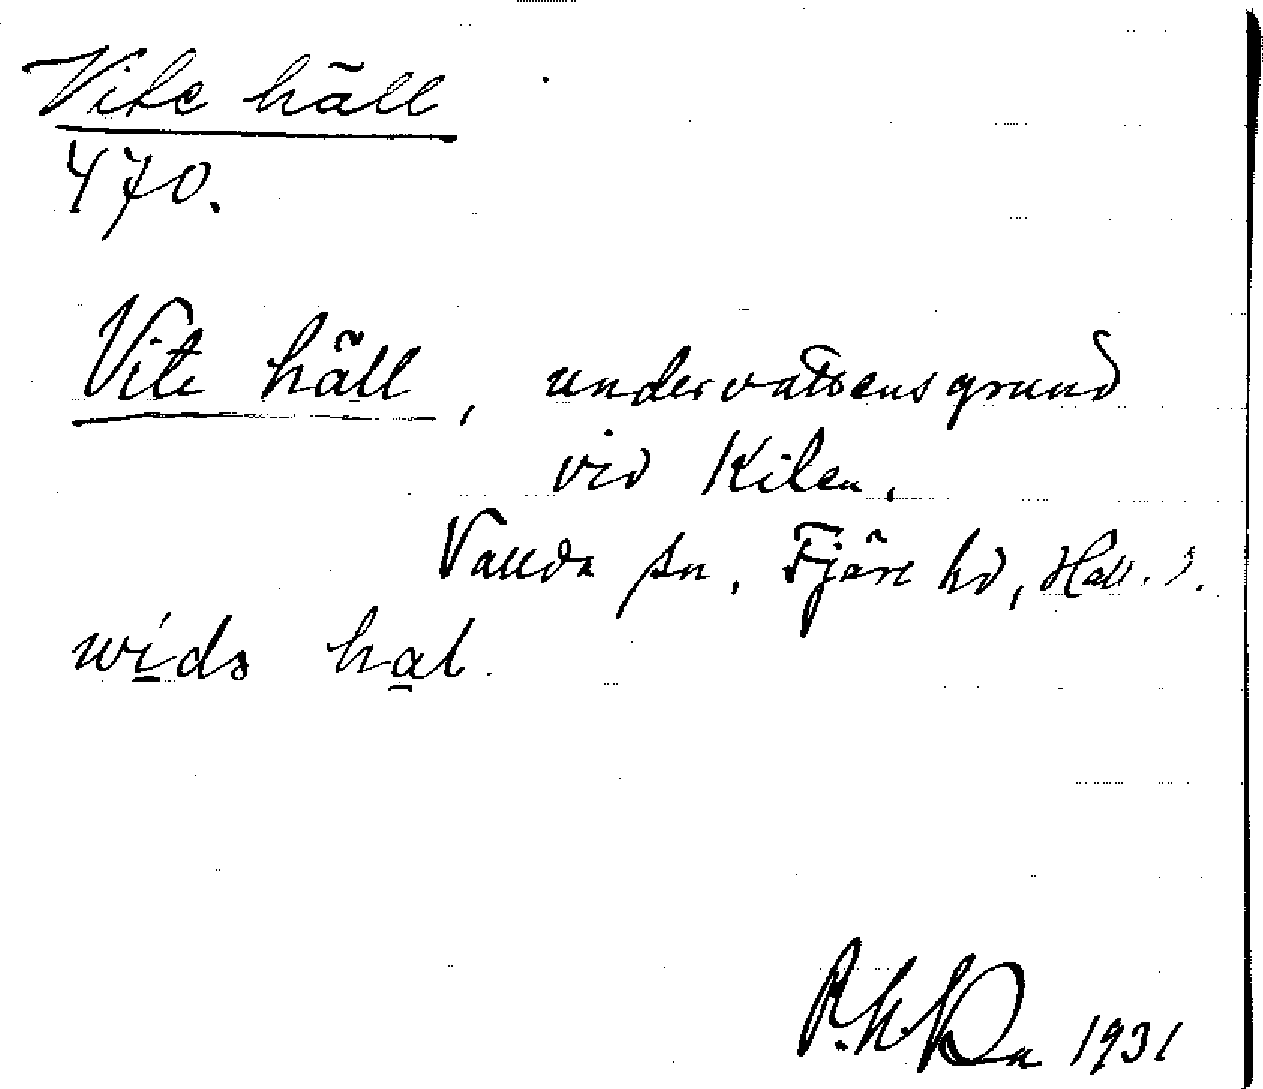 Vite häll
470.
Vite häll, undervattensgrund
vid Kilen.
Vallda sn, Fjäre hd, Hall. l.
1931